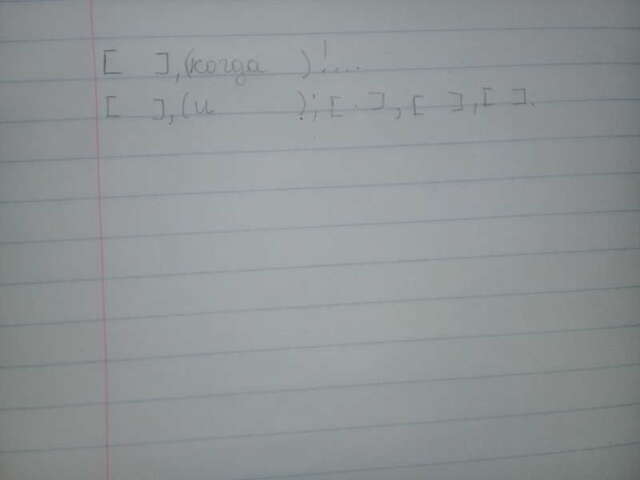 [ ], (когда )!...
[ ], (и ); [ ], [ ], [ ].